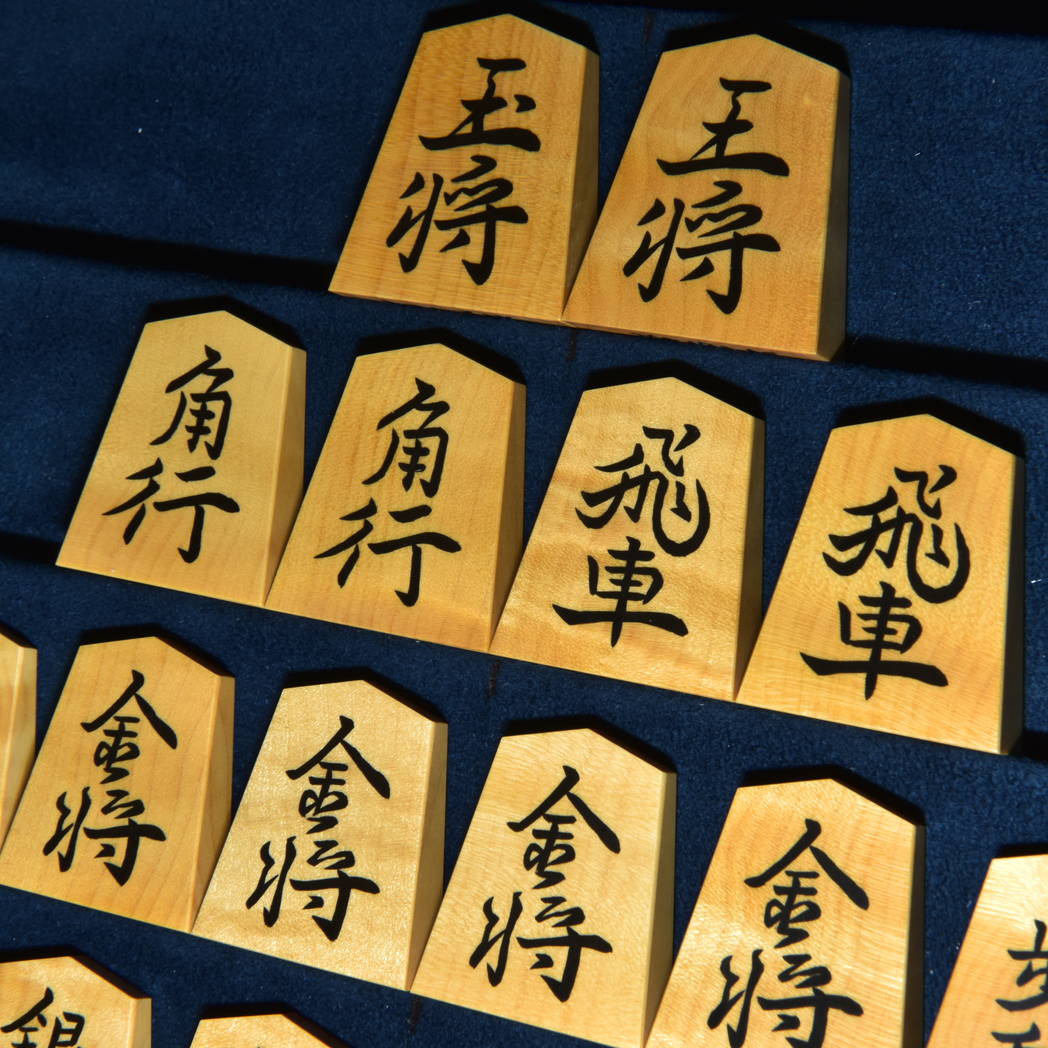 玉将
王将
角行
角行
飛車
飛車
金将
金将
金将
金将
銀
歩